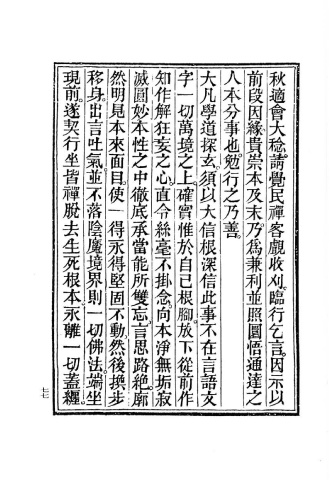 秋適會大稔請覺民禪客觀收刈臨行乞言因示以
前段因緣貴崇本及末乃為兼利並照圓悟通達之
人本分事也勉行之乃善
大凡學道探玄須以大信根深信此事不在言語文
字一切萬境之上確實惟於自己根腳放下從前作
知作解狂妄之心直令絲毫不掛念向本淨無垢寂
滅圓妙本性之中徹底承當能所雙忘言思路絕廓
然明見本來面目使一得永得堅固不動然後換步
移身出言吐氣並不落陰魔境界則一切佛法端坐
現前遂契行坐皆禪脫去生死根本永離一切蓋纏
七七